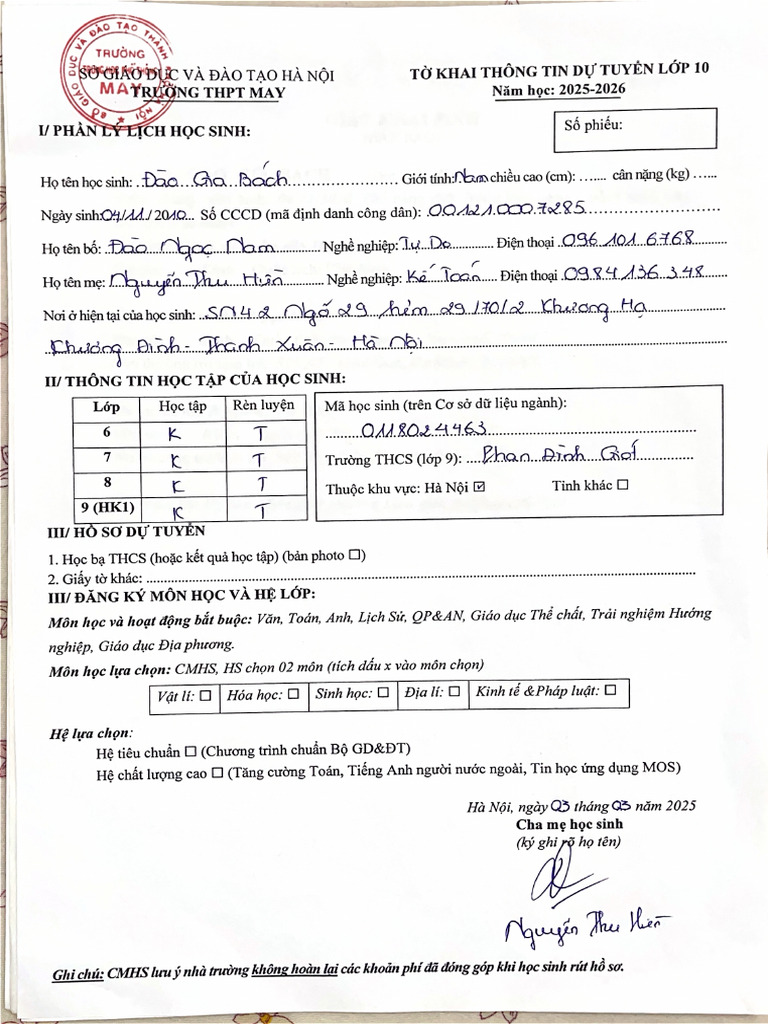 TRƯỜNG
MAY
SỞ GIÁO DỤC VÀ ĐÀO TẠO HÀ NỘI
TRƯỜNG THPT MAY
TỜ KHAI THÔNG TIN DỰ TUYỂN LỚP 10
Năm học: 2025-2026
Số phiếu:
I/ PHẦN LÝ LỊCH HỌC SINH:
Họ tên học sinh: Đào Gia Bách Giới tính: Nam chiều cao (cm): ...... cân nặng (kg) ......
Ngày sinh: 04/11/2010 Số CCCD (mã định danh công dân): 00121.000.7285
Họ tên bố: Đào Ngọc Nam Nghề nghiệp: Tự Do Điện thoại 096 101 6768
Họ tên mẹ: Nguyễn Thu Hiền Nghề nghiệp: Kế Toán Điện thoại 0984 136 348
Nơi ở hiện tại của học sinh: SN42 Ngõ 29 hẻm 29/70/2 Khương Hạ
Khương Đình - Thanh Xuân - Hà Nội
II/ THÔNG TIN HỌC TẬP CỦA HỌC SINH:
Lớp Học tập Rèn luyện
6 K T
7 K T
8 K T
9 (HK1) K T
Mã học sinh (trên Cơ sở dữ liệu ngành):
0118024463
Trường THCS (lớp 9): Phan Đình Giót
Thuộc khu vực: Hà Nội ☑ Tỉnh khác ☐
III/ HỒ SƠ DỰ TUYỂN
1. Học bạ THCS (hoặc kết quả học tập) (bản photo ☐)
2. Giấy tờ khác: ......
III/ ĐĂNG KÝ MÔN HỌC VÀ HỆ LỚP:
Môn học và hoạt động bắt buộc: Văn, Toán, Anh, Lịch Sử, QP&AN, Giáo dục Thể chất, Trải nghiệm Hướng
nghiệp, Giáo dục Địa phương.
Môn học lựa chọn: CMHS, HS chọn 02 môn (tích dấu x vào môn chọn)
Vật lí: ☐ Hóa học: ☐ Sinh học: ☐ Địa lí: ☐ Kinh tế &Pháp luật: ☐
Hệ lựa chọn:
Hệ tiêu chuẩn ☐ (Chương trình chuẩn Bộ GD&ĐT)
Hệ chất lượng cao ☐ (Tăng cường Toán, Tiếng Anh người nước ngoài, Tin học ứng dụng MOS)
Hà Nội, ngày 03 tháng 03 năm 2025
Cha mẹ học sinh
(ký ghi rõ họ tên)
Nguyễn Thu Hiền
Ghi chú: CMHS lưu ý nhà trường không hoàn lại các khoản phí đã đóng góp khi học sinh rút hồ sơ.